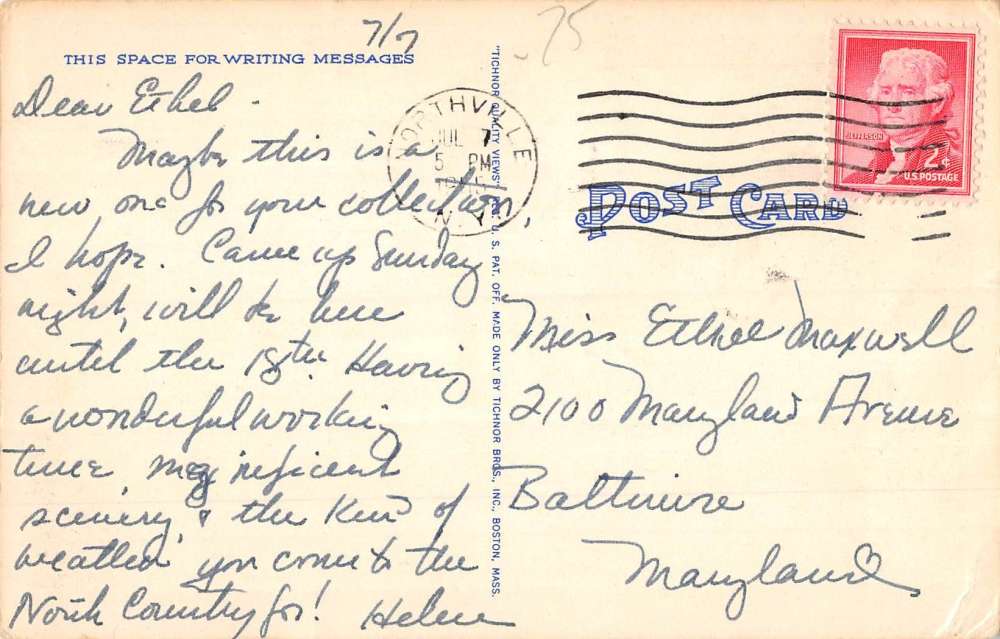 7/7
.75
THIS SPACE FOR WRITING MESSAGES
Dear Ethel -
Maybe this is a
new one for your collection,
I hope. Came up Sunday
night, will be here
until the 18th. Having
a wonderful working
time, magnificent
scenery & the kind of
weather you come to the
North Country for! Helen
"TICHNOR QUALITY VIEWS" REG. U. S. PAT. OFF. MADE ONLY BY TICHNOR BROS., INC., BOSTON, MASS.
NORTHVILLE
JUL 7
5 PM
N.Y.
JEFFERSON
2¢
U.S. POSTAGE
POST CARD
Miss Ethel Maxwell
2100 Maryland Avenue
Baltimore
Maryland